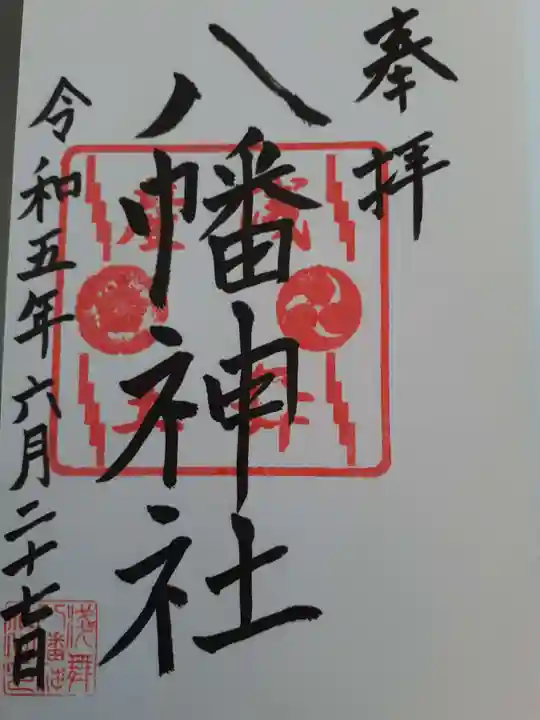 奉拝
八幡神社
令和五年六月二十七日